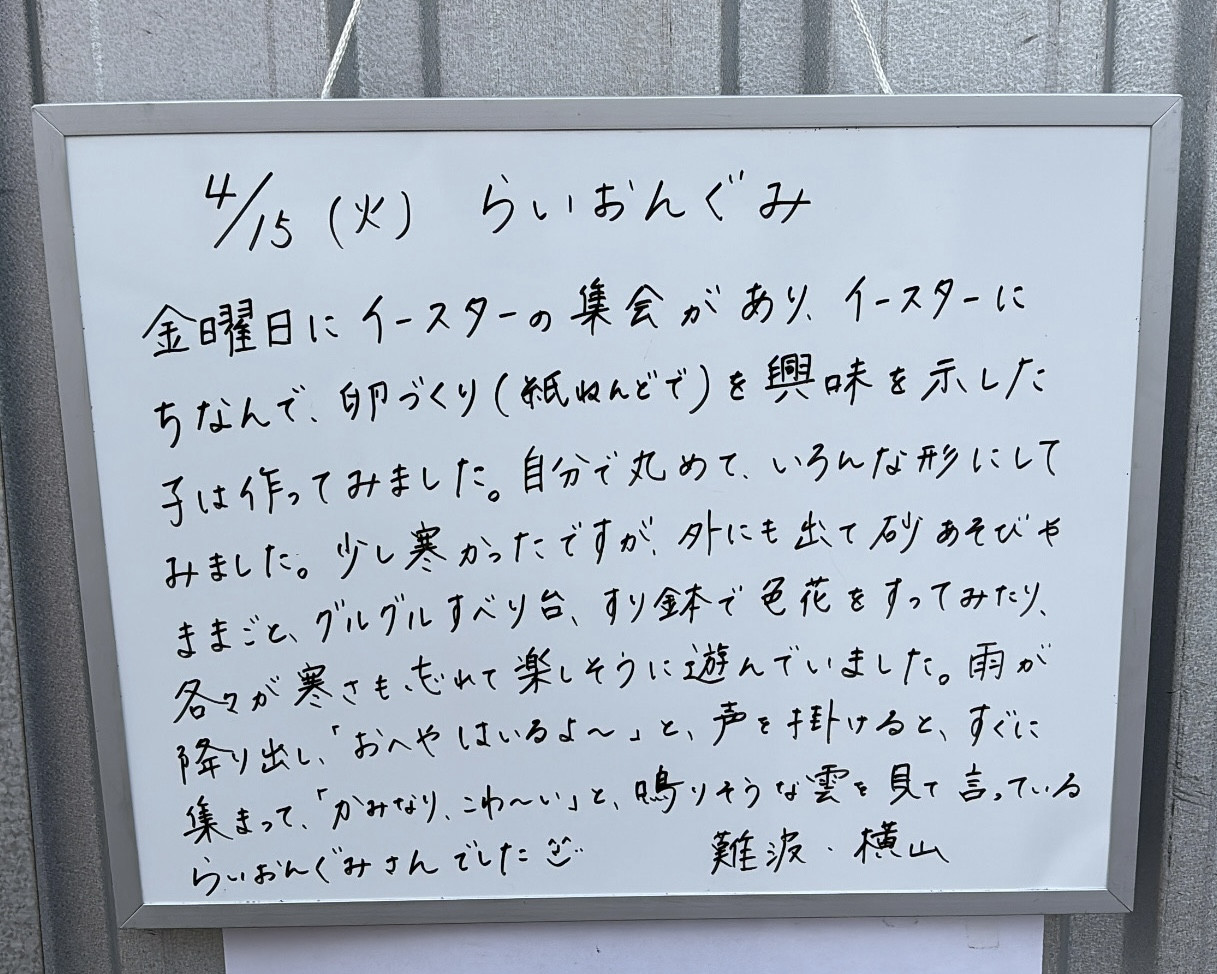 4/15 (火) らいおんぐみ
金曜日にイースターの集会があり、イースターに
ちなんで、卵づくり(紙ねんどで)を興味を示した
子は作ってみました。自分で丸めて、いろんな形にして
みました。少し寒かったですが、外にも出て砂あそびや
ままごと、グルグルすべり台、すり鉢で色花をすってみたり、
各々が寒さも忘れて楽しそうに遊んでいました。雨が
降り出し、「おへやはいるよ〜」と、声を掛けると、すぐに
集まって、「かみなり、こわ〜い」と、鳴りそうな雲を見て言っている
らいおんぐみさんでした 難波・横山